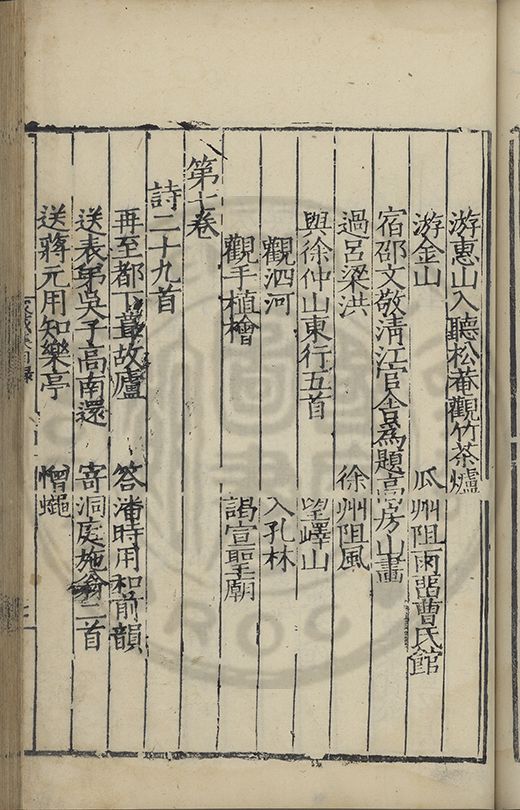 游惠山入聽松菴觀竹茶爐
游金山 瓜州阻雨畱曹氏館
宿邵文敬清江官舍爲題高房山畫
過呂梁洪 徐州阻風
與徐仲山東行五首 望嶧山
觀泗河 入孔林
觀手植檜 謁宣聖廟
第七卷
詩二十九首
再至都下葺故廬 答潘時用和前韻
送表弟吳子高南還 寄洞庭施翁二首
送蔣元用知樂亭 憎蠅